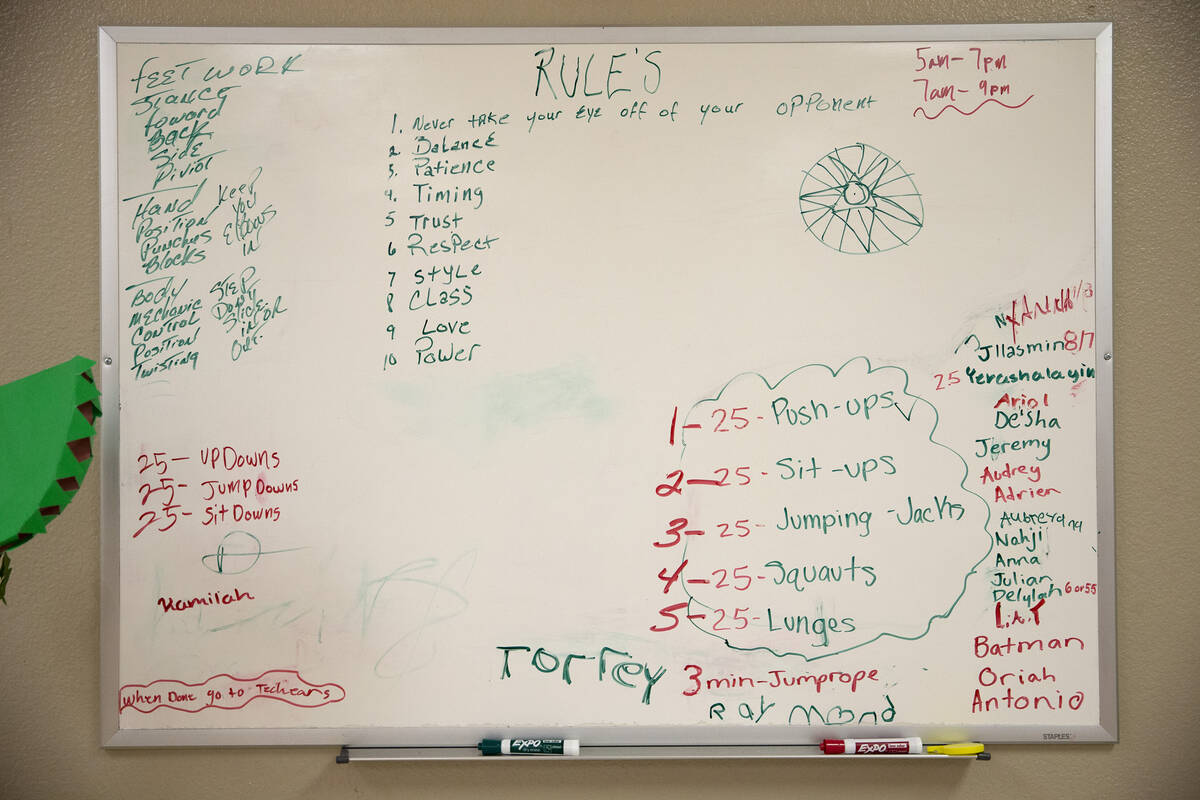 RULE'S
1. Never take your Eye off of your opponent
2 Balance
3. Patience
4. Timing
5 Trust
6 Respect
7 Style
8 Class
9 Love
10 Power
5am-7pm
7am-9pm
FEET WORK
Stance
foward
Back
Side
Piviot
Hand
Position
Punches
Blocks
Keep
You
Elbows
in
Body
mechanic
Control
Position
Twisting
Step
Slide
in or
Out
25- UPDowns
25- JUMPDowns
25- SitDowns
Kamilah
When Done go to Techears
1-25-Push-ups
2-25-Sit-ups
3-25-Jumping-Jacks
4-25-Squauts
5-25-Lunges
3min-Jumprope
Torrey
RayMond
Jllasmin 8/7
25 Yerashalayin
Ariol
De'Sha
Jeremy
Audrey
Adrien
Nahji
Anna
Julian
Delylah 6 or 55
Batman
Oriah
Antonio
EXPO
EXPO
STAPLES